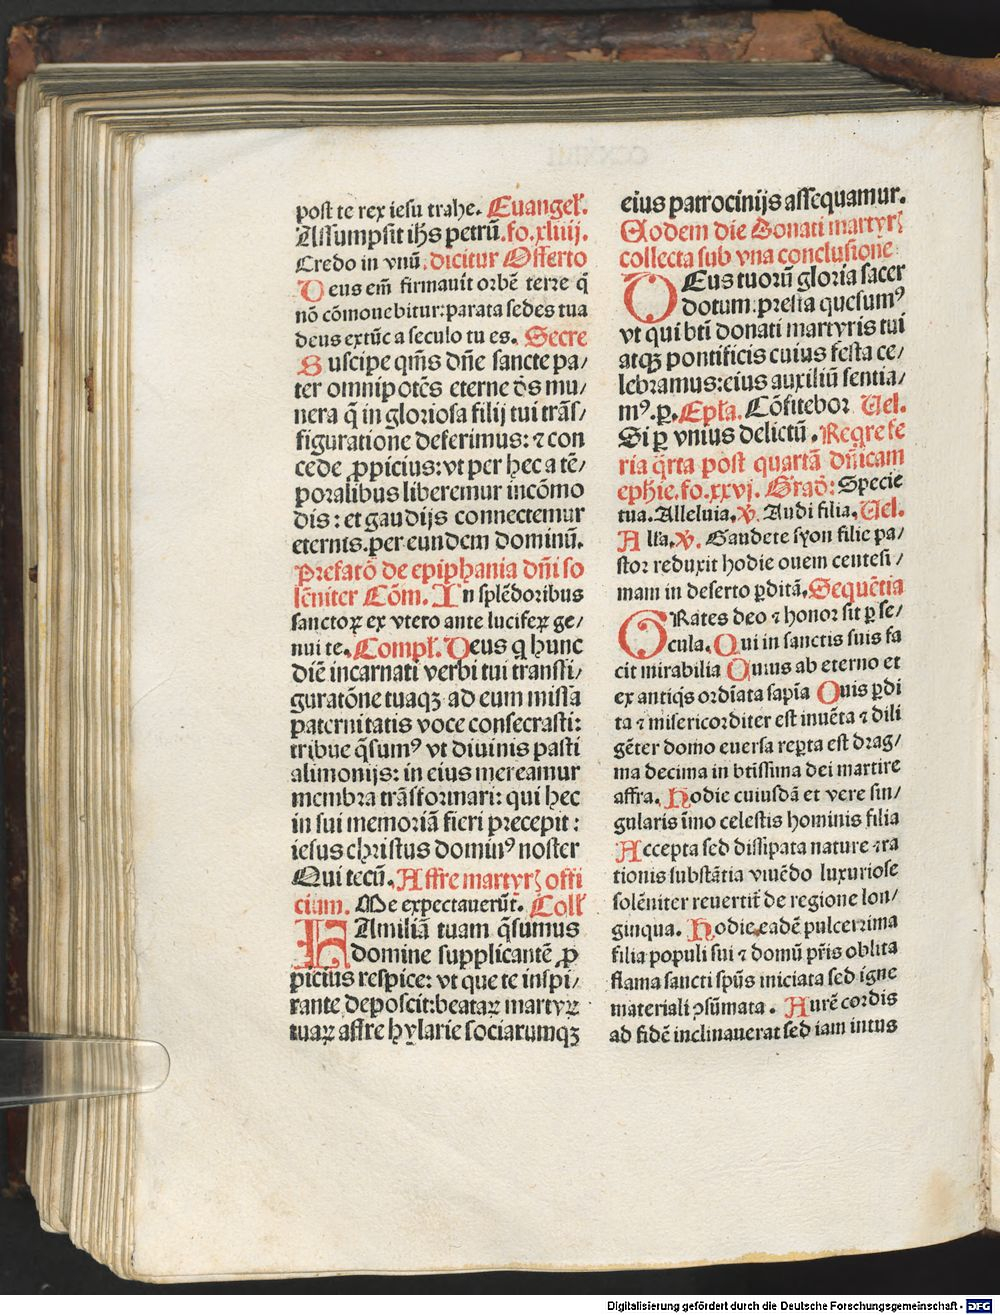 post te rex iesu trahe. Euangeł.
Assumpsit ihs petrū.fo.xliiij.
Credo in vnū.dicitur Offerto
Deus em̄ firmauit orbē terre q̄
nō cōmouebitur:parata sedes tua
deus extūc a seculo tu es. Secre
Suscipe qm̄s dn̄e sancte pa/
ter omnipotēs eterne ds̄ mu/
nera q̄ in gloriosa filij tui trāſ/
figuratione deferimus: ⁊ con
cede ꝓpicius: vt per hec a tē/
poralibus liberemur incōmo
dis: et gaudijs connectemur
eternis.per eundem dominū.
Prefatō de epiphania dn̄i so
lēniter Cōm. In splēdoribus
sanctoꝝ ex vtero ante luciferꝝ ge/
nui te. Compł. Deus q hunc
diē incarnati verbi tui transfi/
guratōne tuaqꝫ ad eum missa
paternitatis voce consecrasti:
tribue q̄sumꝰ vt diuinis pasti
alimonijs: in eius mereamur
membra trāsformari: qui hec
in sui memoriā fieri precepit:
iesus christus dominꝰ noster
Qui tecū. Affre martyrꝫ offi
cium. Me expectauerūt. Coll'
FAmiliā tuam q̄sumus
domine supplicantē ꝓ
picius respice: vt que te inspi/
rante deposcit:beataꝝ martyꝝ
tuaꝝ affre hylarie sociarumqꝫ
eius patrocinijs assequamur.
Eodem die Donati martyrꝫ
collecta sub vna conclusione
DEus tuorū gloria sacer
dotum.presta quesumꝰ
vt qui bti̅ donati martyris tui
atqꝫ pontificis cuius festa ce/
lebramus:eius auxiliū sentia/
mꝰ.ꝑ. Epła. Cōfitebor Uel.
Si ꝑ vnius delictū. Reqre fe
ria q̄rta post quartā dn̄icam
ephie.fo.xxvj. Grad̄: Specie
tua. Alleluia. ℣. Audi filia. Uel.
Alla. ℣. Gaudete syon filie pa/
stor reduxit hodie ouem centesi/
mam in deserto ꝑditā. Sequētia
GRates deo ⁊ honor sit ꝑ se/
cula. Qui in sanctis suis fa
cit mirabilia Quius ab eterno et
ex antiqs ordīata sapīa Quis ꝑdi
ta ⁊ misericorditer est inuēta ⁊ dili
gēter domo euersa reꝑta est drag/
ma decima in btissima dei martire
affra. Hodie cuiusdā et vere sin/
gularis īmo celestis hominis filia
Accepta sed dissipata nature ⁊ra
tionis substātia viuēdo luxuriose
solēniter reuertit̄ de regione lon/
ginqua. Hodie eadē pulcerrima
filia populi sui ⁊ domū pr̄is oblita
flama sancti spūs iniciata sed igne
materiali ↄsūmata. Aurē cordis
ad fidē inclinauerat sed iam intus
Digitalisierung gefördert durch die Deutsche Forschungsgemeinschaft - DFG